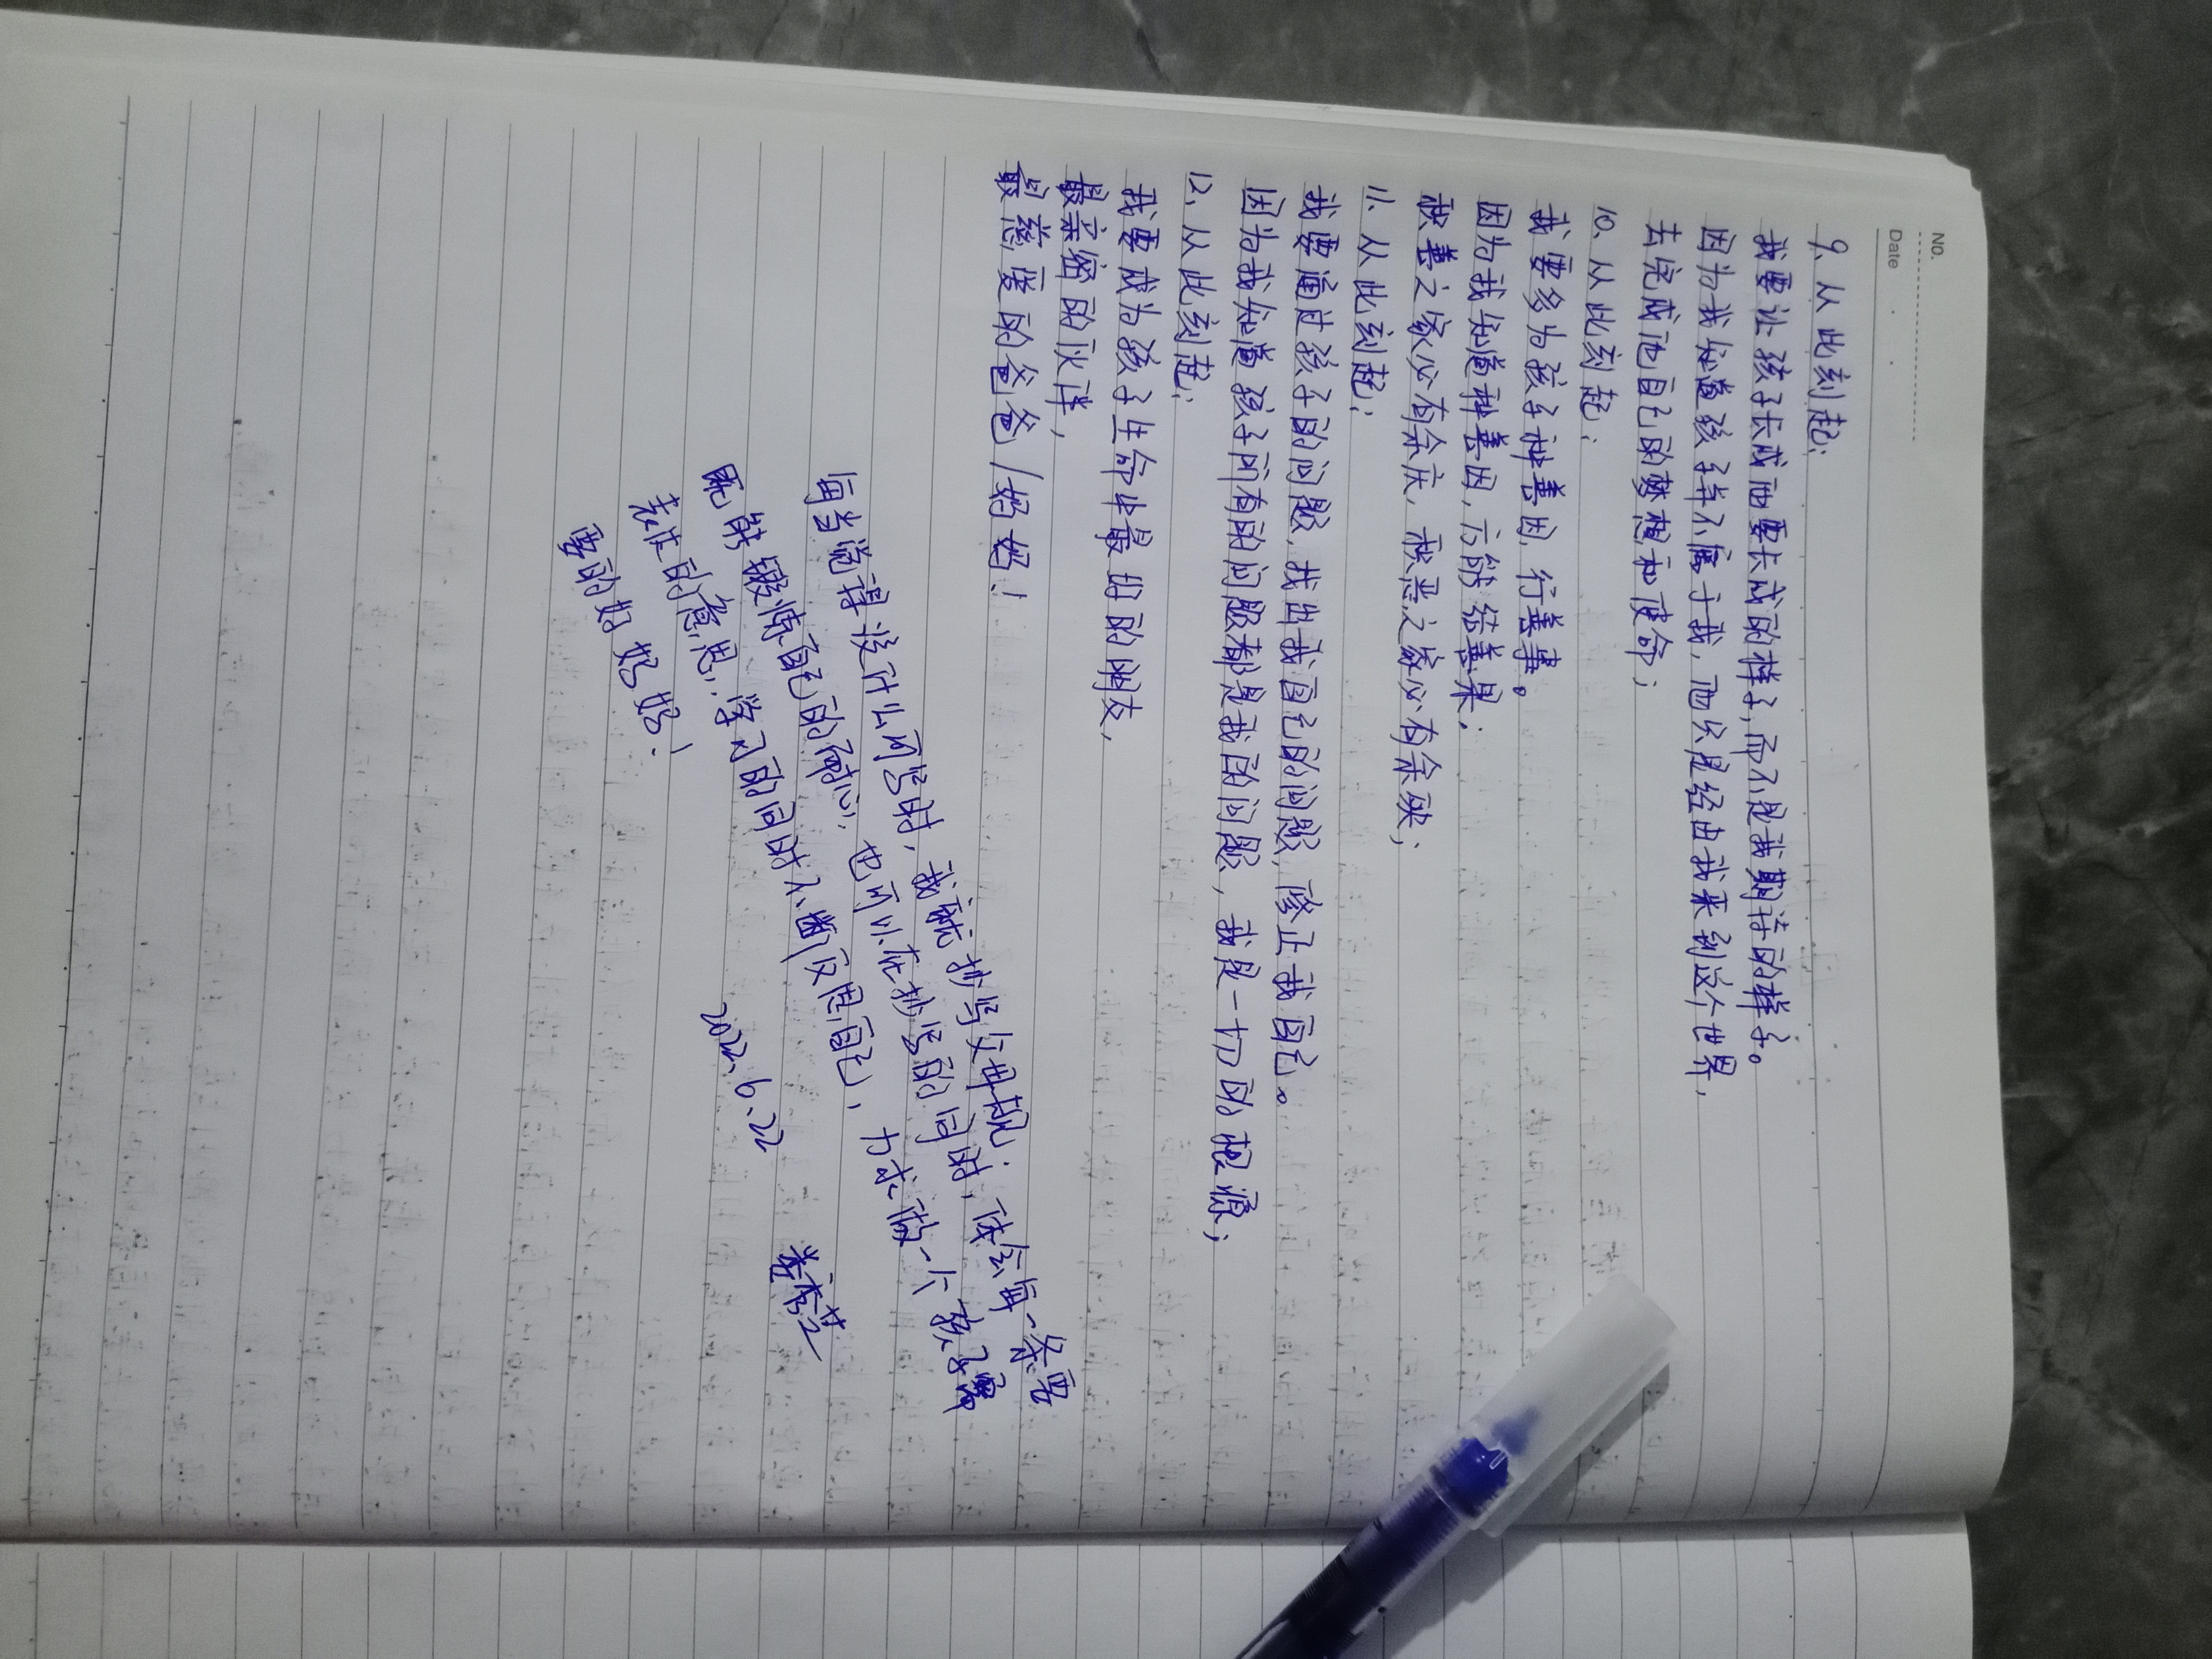 No.
Date
9、从此刻起；
我要让孩子长成他要长成的样子，而不是我期待的样子。
因为我知道孩子并不属于我，他只是经由我来到这个世界，
去完成他自己的梦想和使命；
10、从此刻起；
我要多为孩子种善因，行善事。
因为我知道种善因，方能结善果；
积善之家必有余庆，积恶之家必有余殃；
11、从此刻起；
我要通过孩子的问题，找出我自己的问题，修正我自己。
因为我知道孩子所有的问题都是我的问题，我是一切的根源；
12、从此刻起；
我要成为孩子生命中最好的朋友，
最亲密的伙伴，
最慈爱的爸爸/妈妈！
每当觉得没什么可写时，我就抄写父母规；
既能锻炼自己的耐心，也可以在抄写的同时，体会每一条要
表达的意思，学习的同时不断反思自己，力求做一个孩子需
要的好妈妈！
2022.6.22